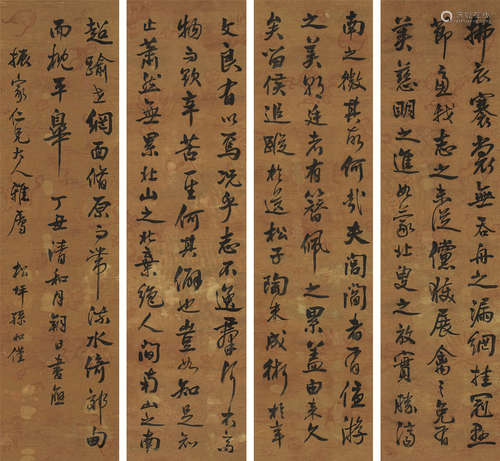 拂衣褰裳無吞舟之漏網挂冠懸
節慮我志之未從儻獲展禽之免有
美慈明之進如蒙北叟之放實勝濟
南之徵其故何哉夫閭閻者有優游
之美朝廷者有簪佩之累蓋由來久
矣留侯追蹤於松子陶朱成術於辛
文良有以焉況乎志不逸群行不高
物而欲辛苦一生何其僻也豈如知足知
止蕭然無累北山之北棄絕人間南山之南
超踰世網面脩原而帶流水倚郊甸
而枕平皋 丁丑清和月朔日書應
振家仁兄大人雅屬 松坪孫如僅